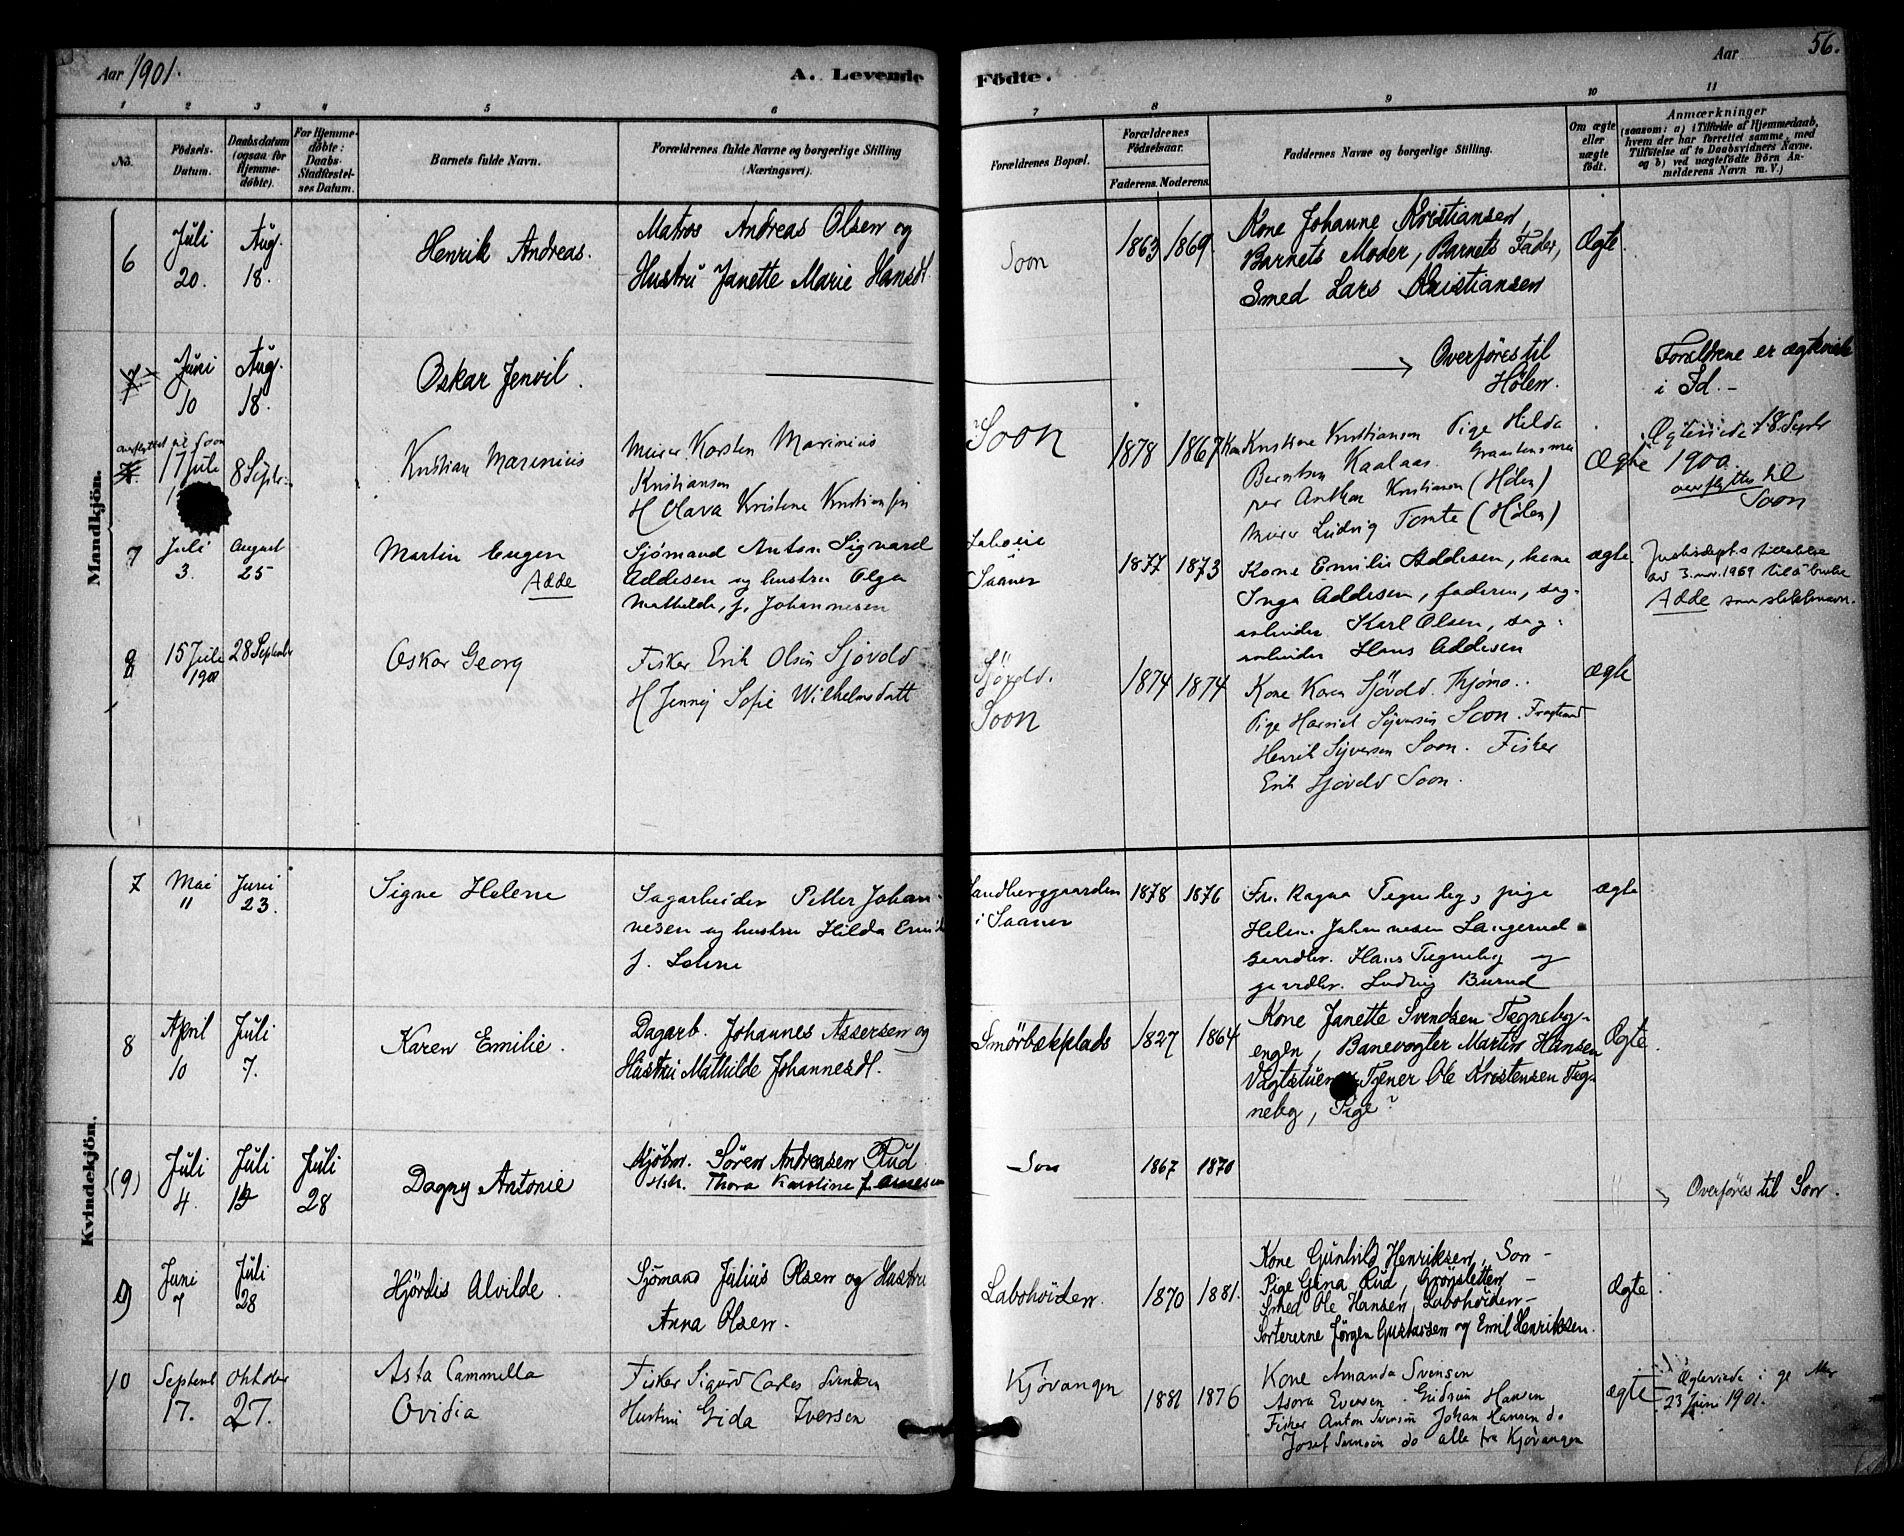 Aar 1901.
A. Levende
Födte.
Aar
56.
1 2 3 4 5 6 7 8 9 10 11
No.
Födsels-
Datum.
Daabsdatum
(ogsaa for
Hjemme-
döbte).
For Hjemme-
döbte:
Daabs-
Stadfæstel-
ses Datum.
Barnets fulde Navn.
Forældrenes fulde Navne og borgerlige Stilling
(Næringsvei).
Forældrenes Bopæl.
Forældrenes
Födselsaar.
Faderens. Moderens.
Faddernes Navne og borgerlige Stilling.
Om ægte
eller
uægte
födt.
Anmærkninger
(saasom: a) i Tilfælde af Hjemmedaab,
hvem der har forrettet samme, med
Tilföielse af to Daabsvidners Navne.
og b) ved uægtefödte Börn An-
melderens Navn m. V.)
Mandkjön.
6
Juli
20.
Aug.
18.
Henrik Andreas.
Matros Andreas Olsen og
Hustru Janette Marie Hansdt
Soon
1863 1869.
Kone Johanne Kristiansen,
Barnets Moder, Barnets Fader,
Smed Lars Kristiansen
Ægte.
7
Juni
10
Aug.
18.
Oskar Jenvil.
Overføres til
Hølen.
Forældrene er ægteviede
i Id.-
overflyttet til Soon
7
17 Juli
8 Septbr.
Kristian Marinius
Murer Karsten Marinius
Kristiansen
H Olava Kristine Kristiansen
Soon
1878 1867
Kone Kristine Kristiansen Pige Hilda
Berntsen Kaalaas. Graastensmu
rer Anthon Kristiansen (Hølen)
Murer Ludvig Tomte (Hølen)
Ægte
Ægteviede 18 Septr
1900
overflyttes til
Soon
7
Juli
3.
August
25
Martin Eugen
Adde
Sjömand Anton Sigvard
Addesen og hustru Olga
Mathilde, f. Johannesen
Laboie
Saaner
1877 1873
Kone Emilie Addesen, kone
Inga Addesen, faderen, sag-
arbeider Karl Olsen, sag-
arbeider Hans Addesen
ægte
Justisdept.s tillatelse
av 3. nov. 1969 til å bruke
Adde som slektsnavn.
8
15 Juli
1901
28 September
Oskar Georg
Fisker Erik Olsen Sjövold
H Jenny Sofie Wilhelmsdatt
Sjövold.
Soon
1874 1874
Kone Karen Sjövold. Thjömö.
Pige Harriet Syversen Soon.
Henrik Syversen Soon. Fisker
Erik Sjövold Soon.
ægte
Kvindekjön.
7
Mai
"
Juni
23.
Signe Helene
Sagarbeider Petter Johan-
nesen og hustru Hilda
f. Lohne
Sandberggaarden
i Saaner
1878 1876
Fru Ragna Tegneby, pige
Helen. Johannesen Langerud
gaardbr. Hans Tegneby og
gaardbr. Ludvig Burud
ægte
8
April
10
Juli
7.
Karen Emilie.
Dagarb. Johannes Assersen og
Hustru Mathilde Johannesdt.
Smörbækplads
1827 1864
Kone Janette Svendsen Tegneby-
engen, Banevogter Martin Hansen
Vagtstuen, Tjener Ole Kristensen Teg-
neby, Pige?
Ægte.
(9)
Juli
4.
Juli
Juli
28
Dagny Antonie
Kjöbm. Sören Andreasen Rud.
Thora Karoline f.
Son
1867 1870
Overføres til Son.
9
Juni
7
Juli
28
Hjördis Alvilde.
Sjömand Julius Olsen og Hustru
Anna Olsen.
Labohöiden.
1870 1881.
Kone Gunhild Henriksen, Son-
Pige Gina Rud, Grönsletten,-
Smed Ole Hansen, Labohöiden-
Sortererne Jörgen Gustavsen og Emil Henriksen.
Ægte
10
Septemb
17.
Oktober
27.
Asta Cammella
Ovidia
Fisker Sigurd Carles Svendsen
Hustru Gida Iversen
Kjövangen
1881 1876
Kone Amanda Svensen
Asora Eversen Gudrun Hansen
Fisker Anton Svensen Johan Hansen do
Josef Svensen do alle fra Kjövangen
ægte
Ægteviede i
23 Juni 1901.